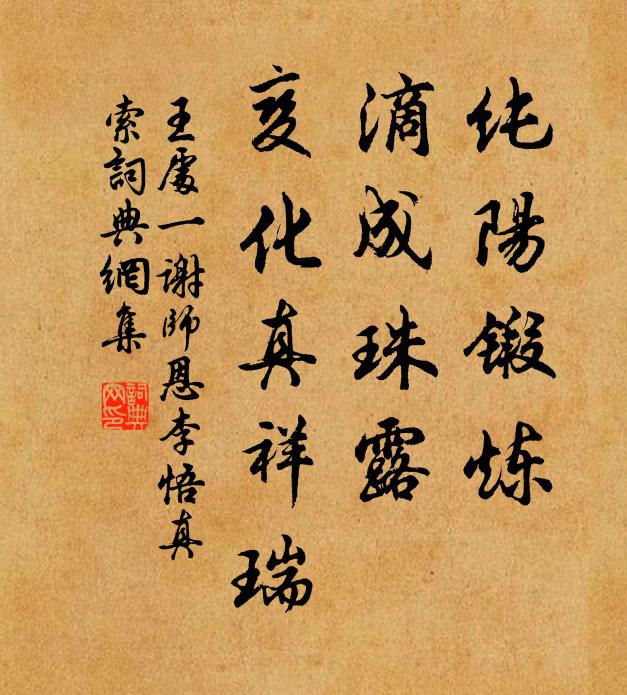 纯陽锻炼
滴成珠露
变化真祥瑞
王處一谢師恩李悟真
索詞典網集
詞典网印